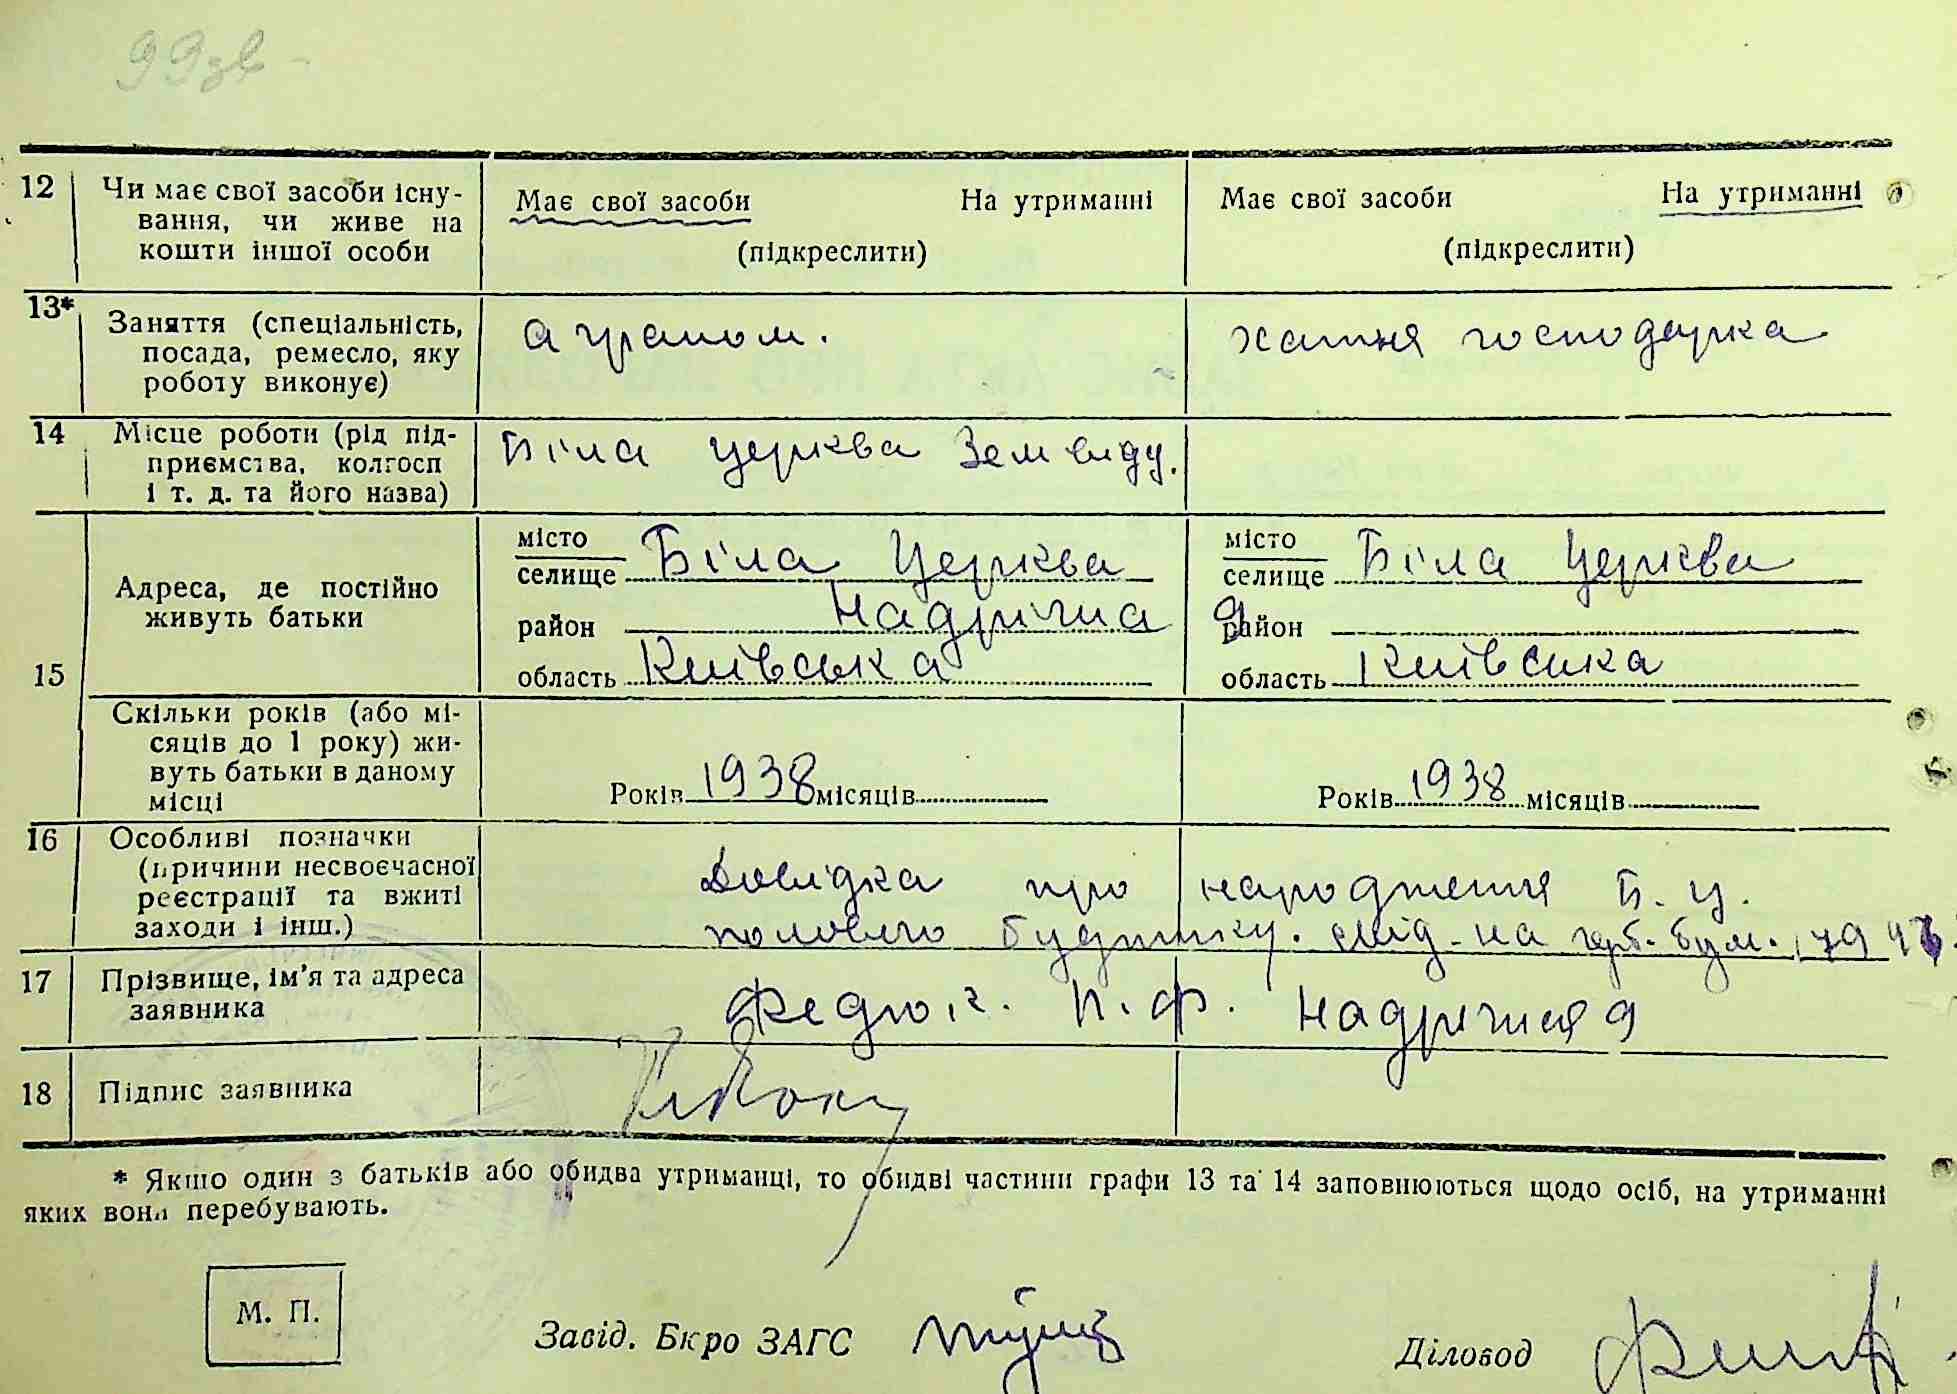 99зв
12 Чи має свої засоби існу-
вання, чи живе на
кошти іншої особи
Має свої засоби На утриманні
(підкреслити)
Має свої засоби На утриманні
(підкреслити)
13* Заняття (спеціальність,
посада, ремесло, яку
роботу виконує)
агроном.
хатня господарка
14 Місце роботи (рід під-
приємства, колгосп
і т. д. та його назва)
Біла ЦеркваЗемвиду.
15
Адреса, де постійно
живуть батьки
місто
селище Біла Церква
район Надрічна 9
область Київська
місто
селище Біла Церква
район
область Київська
Скільки років (або мі-
сяців до 1 року) жи-
вуть батьки в даному
місці
Років 1938 місяців
Років 1938 місяців
16 Особливі позначки
(причини несвоєчасної
реєстрації та вжиті
заходи і інш.)
Довідка про народження Б. Ц.
полового будинку. на герб. бум.
17 Прізвище, ім'я та адреса
заявника
Федюк. П. Ф. Надрічная 9
18 Підпис заявника
* Якшо один з батьків або обидва утриманці, то обидві частини графи 13 та 14 заповнюються щодо осіб, на утриманні
яких вони перебувають.
М. П.
Завід. Бюро ЗАГС
Діловод